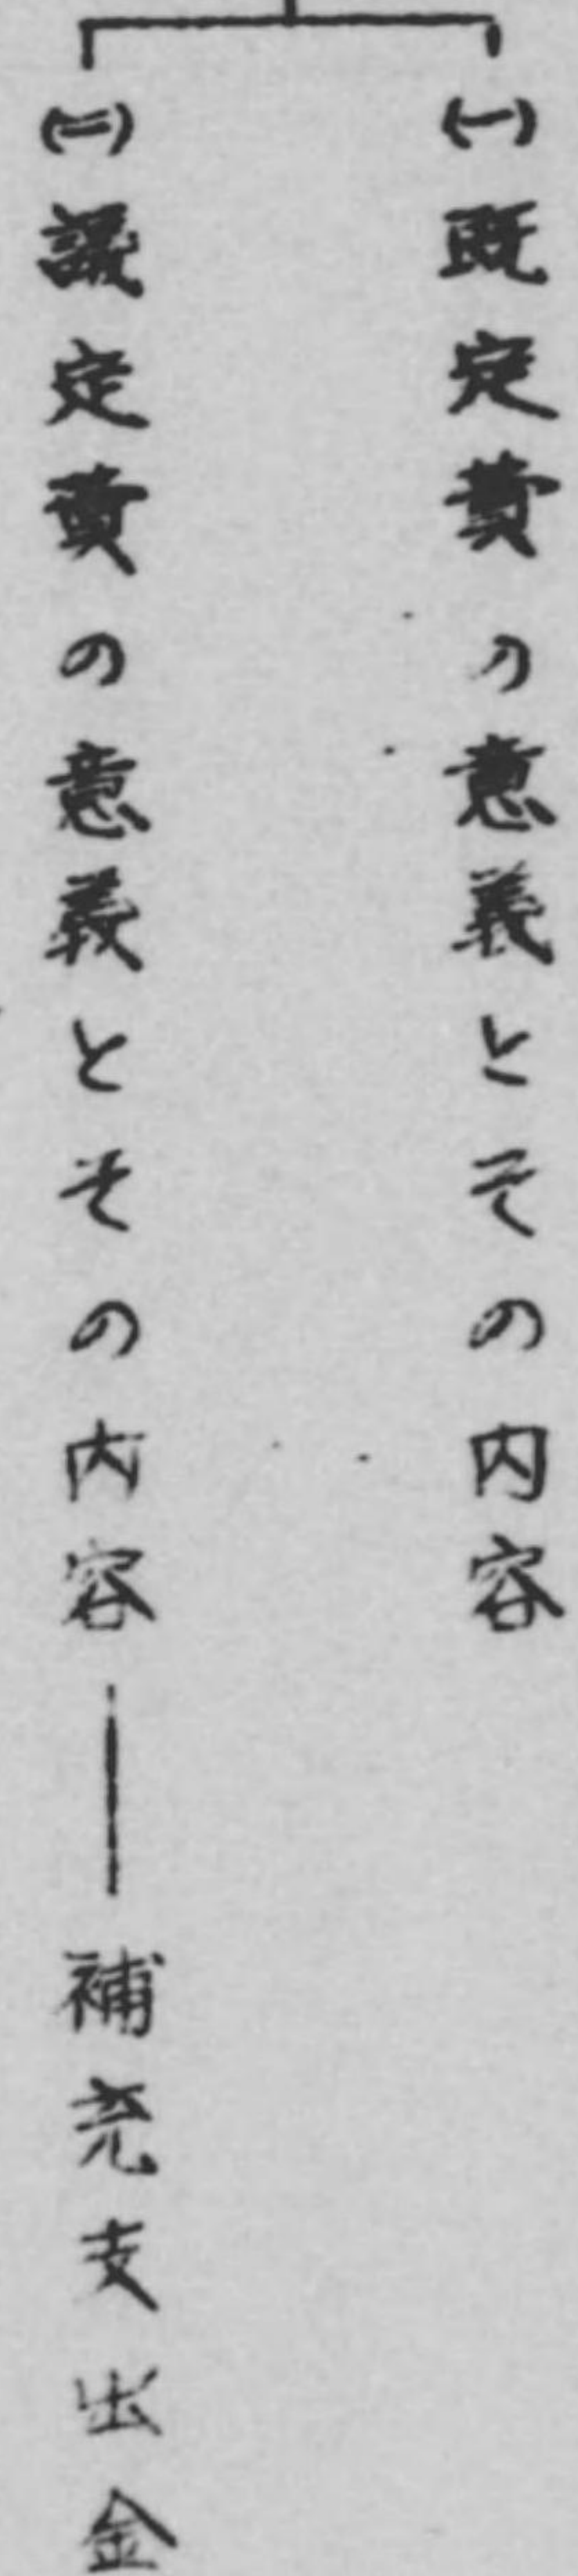 (一)既定費の意義とその内容
(二)議定費の意義とその内容——補充支出金